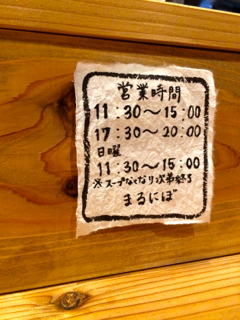 営業時間
11:30〜15:00
17:30〜20:00
日曜
11:30〜15:00
※スープなくなり次第終了
まるにぼ